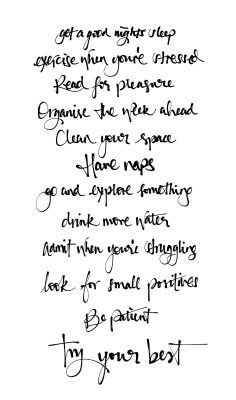 get a good nights sleep
exercise when you're stressed
Read for pleasure
Organise the week ahead
Clean your space
Have naps
go and explore something
drink more water
Admit when you're struggling
look for small positives
Be patient
try your best